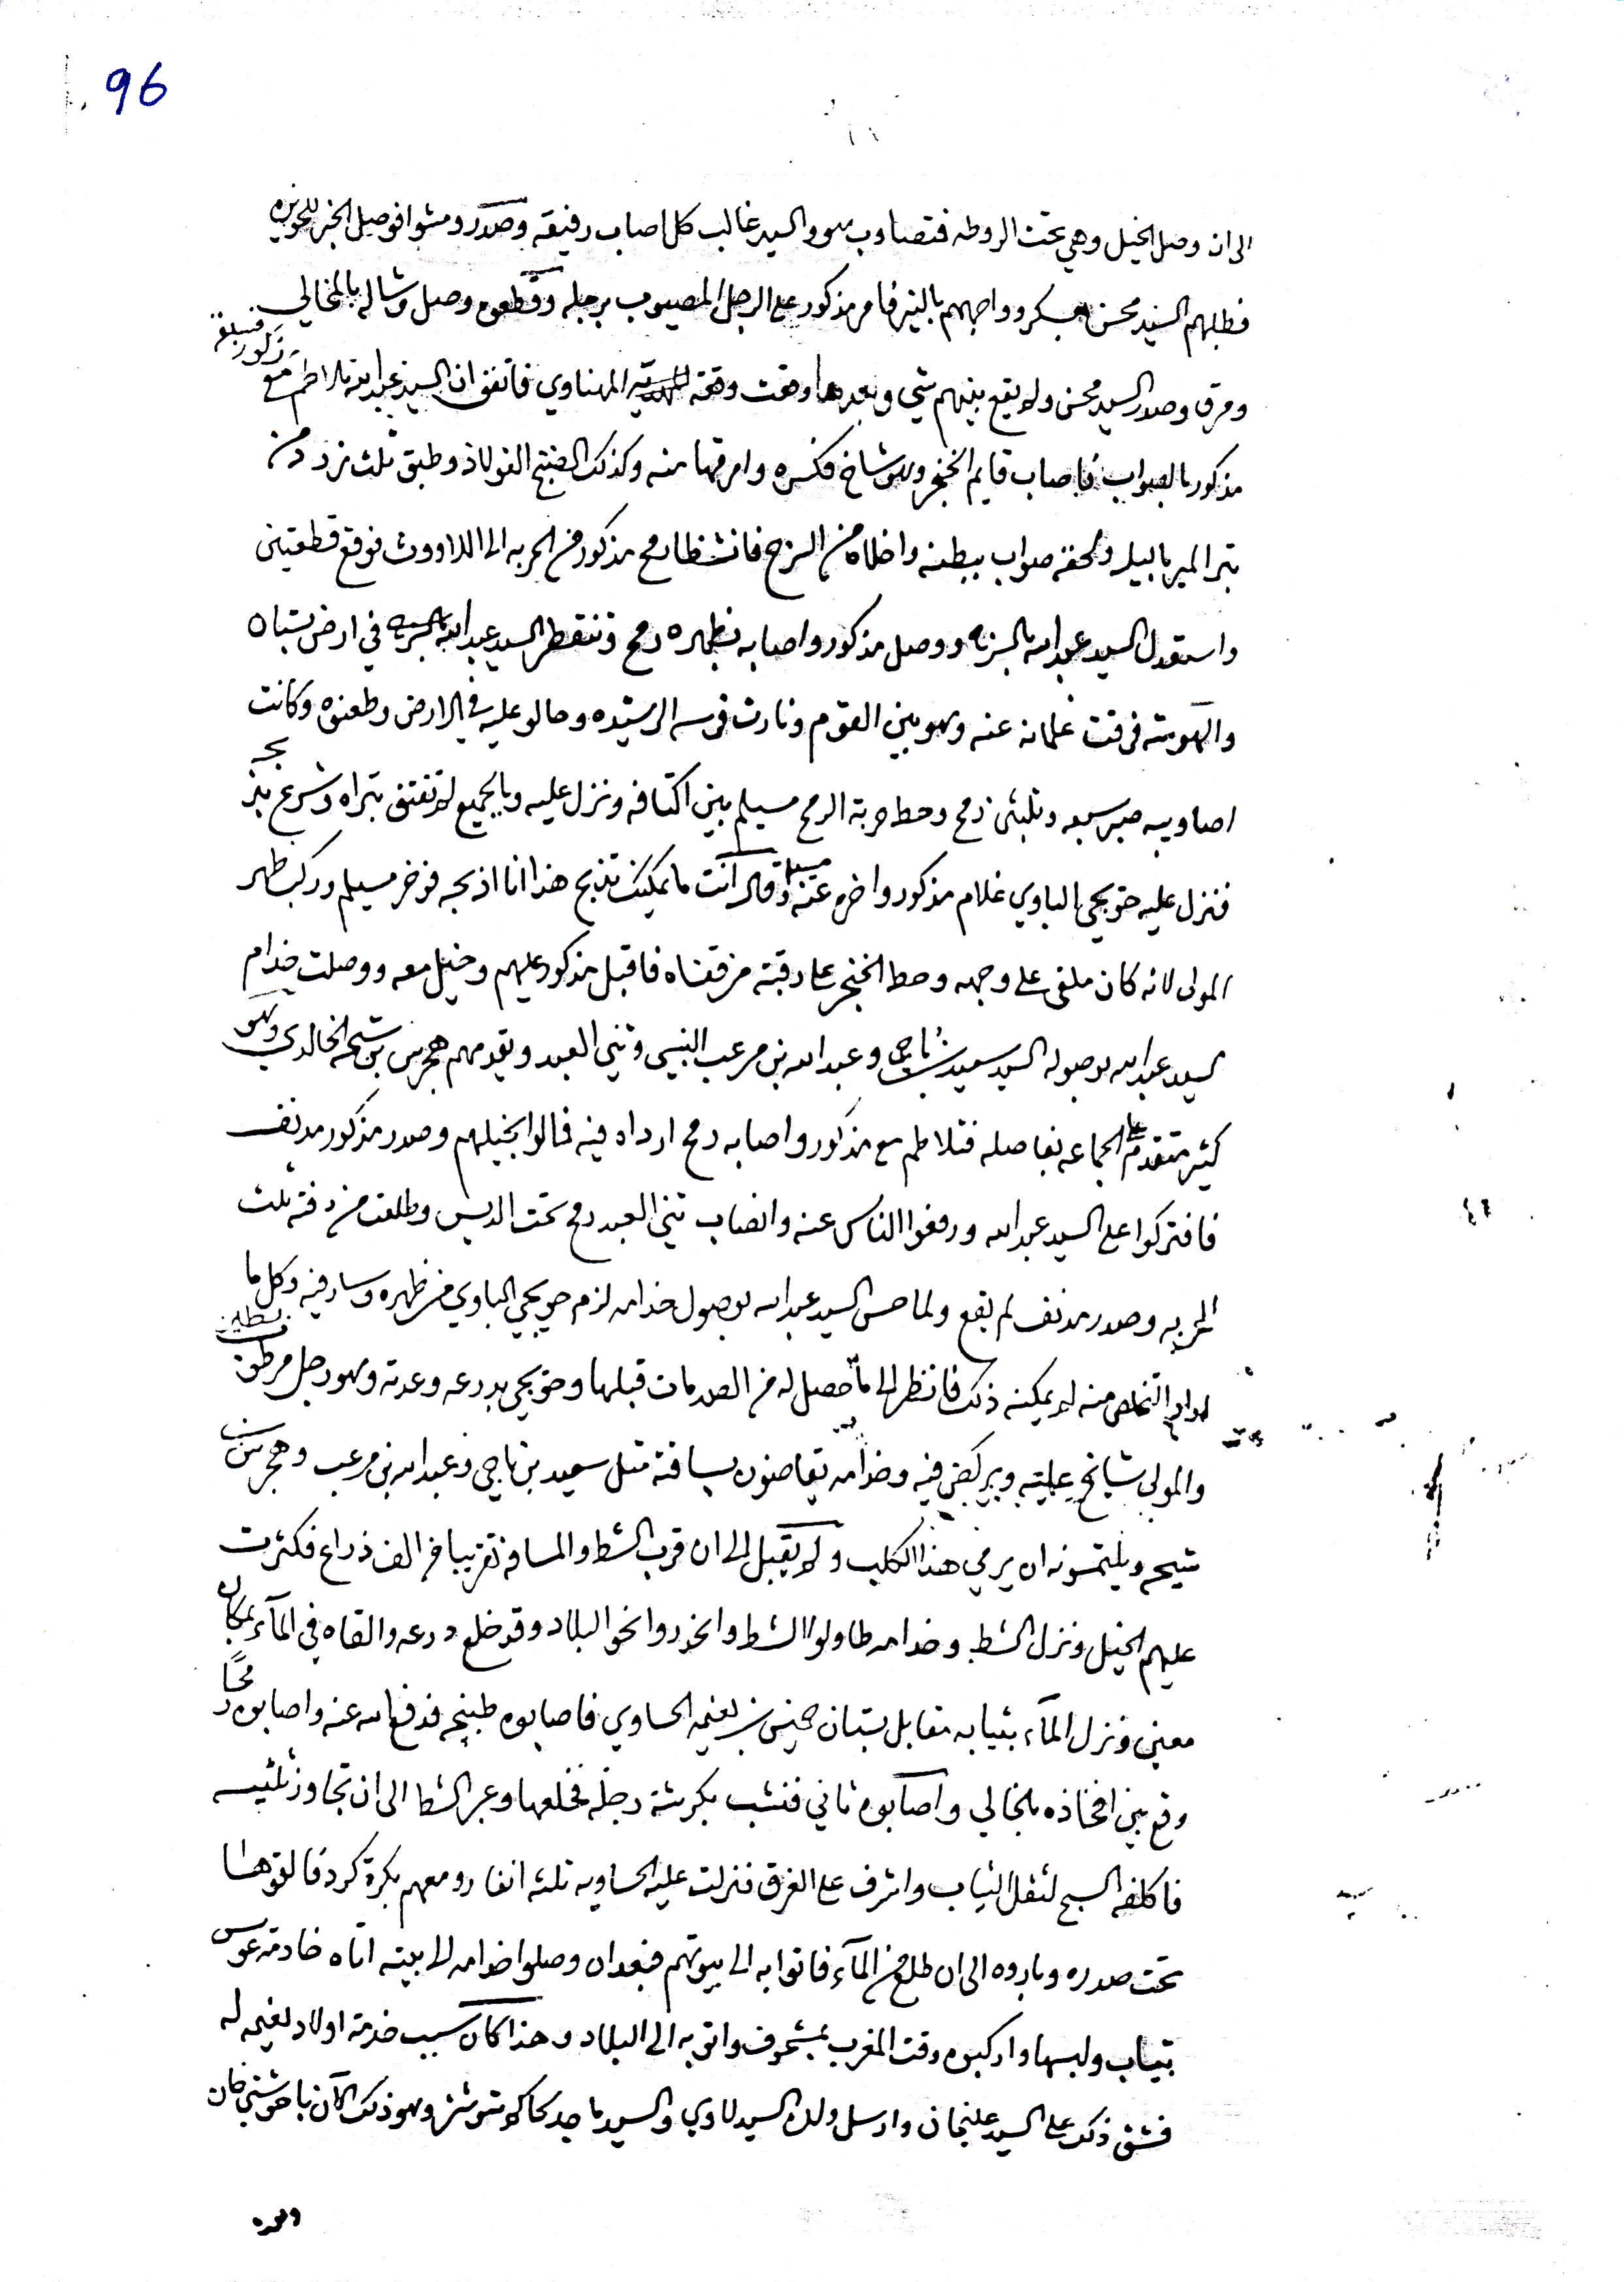 96
الى ان وصل الخيل وهي تحت الروطه فتصاوب هو والسيد غالب كل اصاب رفيقه وصدرو مشوا فوصل الخبر للحويزه
فطلبهم السيد محسن بعسكر وواجههم بالنهر فامر مذكور على الرجل المصيوب برجله وقطعوه وصل وشاله بالمخالي
ومرق وصدر السيد محسن ولا يقع بينهم شي وبعدها وقعت وقعة المهناوي فاتفق ان السيد عبدالله تلاطم مع
مذكور فسبقه
مذكور بالصواب فاصاب قايم الخنجر وهو شاخ فكسره وامرقها منه وكذلك الفولاذ وطبق ثلث زرد من
بتر المير بالبيل ولحقه صواب ببطنه واخلاه من السرج فانشظا رمح مذكور من الحربه الى اللاووث فوقع قطعتين
واستقدل السيد عبدالله ووصل مذكور واصابه بظهره رمح وتنقطر السيد عبدالله في ارض بستاه
والهوشه فرقت غلمانه عنه وهو بين القوم وثارت فرسه الرشيده وحالو عليه في الارض وطعنوه وكانت
اصاويبه سبعه وثلثين رمح وحط حربة الرمح مسيلم بين اكتافه ونزل عليه وبالجميع لا تفتق بتراه وشرع بذبحه
فنزل عليه حويجي الباوي غلام مذكور واخره عنه مسيلم وقال انت ما يمكنك تذبح هذا انا اذبحه فوخر مسيلم وركب ظهر
المولى لانه كان ملقى على وجهه وحط الخنجر على رقبته من قفاه فاقبل مذكور عليهم وخيل معه ووصلت خدام
السيد عبدالله بوصوله السيد سعيد بن ناجي وعبدالله بن مرعب النبسي وثيني العبد ويقدمهم هجرس بن شيحه الخالدي وهو
كثير متقدم على الجماعه بفاصله فتلاطم مع مذكور واصابه رمح ارداه فيه فمالوا بخيلهم وصدر مذكور مدنف
فافتركوا على السيد عبدالله ورفعوا الناس عنه وانصاب ثيني العبد رمح تحت الديس وطلعت من دفته ثلث
الحربه وصدر مدنف لم يقع ولما حس السيد عبدالله بوصول خدامه لزم حويجي الباوي من ظهره وسار فيه وكل ما
اراد التخلص منه لم يمكنه ذلك فانظر الى ما حصل له من الصدمات قبلها وحويجي بدرعه وعدته وهو رجل من بطين
والمولى شايخ عليه ويركض فيه وخدامه يقاضون بساقته مثل سعيد بن ناجي وعبدالله بن مرعب وهجرس بن
شيحه ويلتمسونه ان يرمي هذا الكلب ولا يقبل الى ان قرب الشط والمسافه تقريبا من الف ذراع فكثرت
عليهم الخيل ونزل الشط وخدامه طاولوا الشط وانحدروا نحو البلاد وقد خلع درعه والقاه في المآء بمكان
معين ونزل المآء بثيابه مقابل بستان خنيس بن لغيمه الحساوي فاصابوه طبنجه فدفع الله عنه واصابوه رمحًا
وقع بين افخاذه بالخالي واصابوه ثاني فنشب بكرشة رجله فخلعها وعبر الشط الى ان تجاوز ثلثيه
فاكلفه السبح لثقل الثياب واشرف على الغرق فنزلت عليه الحساويه ثلثه انفار ومعهم بكرة كرد فالقوها
تحت صدره وباروه الى ان طلع من المآء فاتوا به الى بيوتهم فبعد ان وصلوا خدامه الى بيته اتاه خادمه عوس
بثياب ولبسها واركبوه وقت المغرب بمشحوف واتو به الى البلاد وهذا كان سبب خدمة اولاد لغيمه له
فشق ذلك على السيد عليخان وارسل ولده السيد لاوي والسيد ماجد لحاكم شوشتر وهو ذلك الآن باخوشتي خان
وعمده